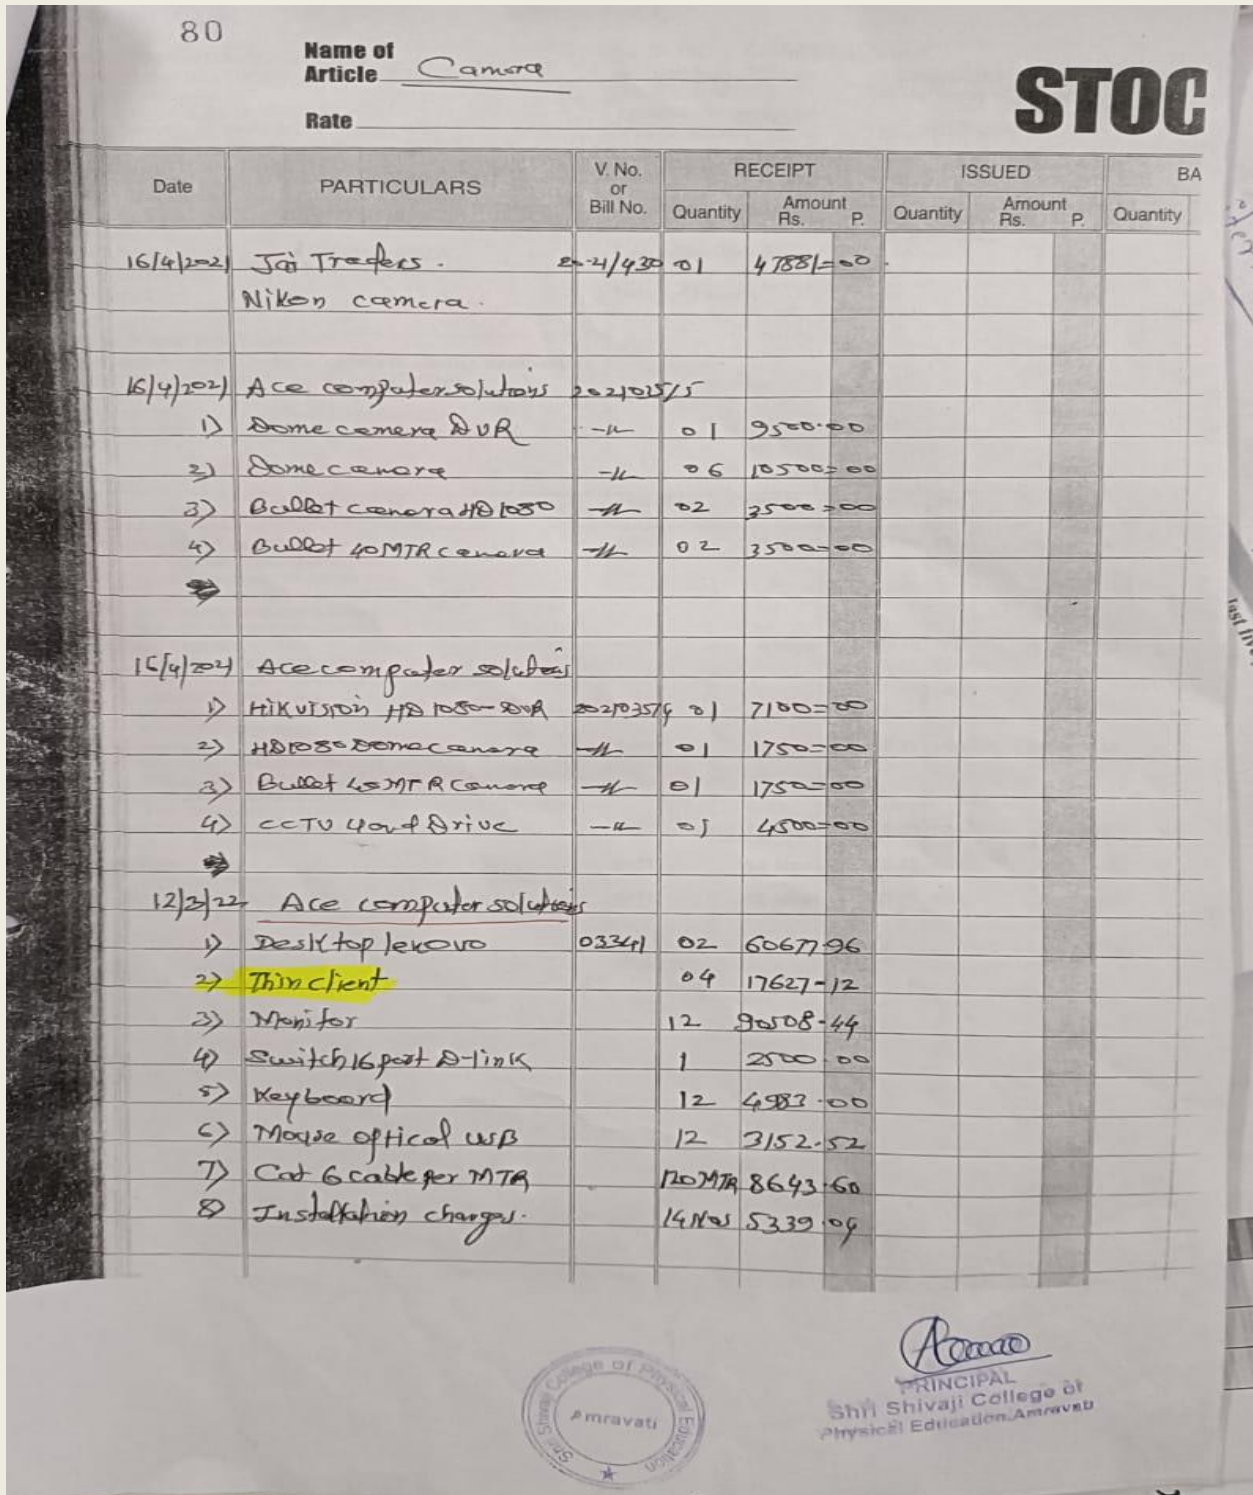 80
Name of
Article Camera
STOC
Rate
Date PARTICULARS V. No. or Bill No. RECEIPT ISSUED BA
Quantity Amount Rs. P. Quantity Amount Rs. P. Quantity
16/4/2021 Jai Traders. 20-21/430 01 47881=00
Nikon camera.
16/4/2021 Ace computer solutions
1) Dome camera DVR -〃- 01 9500.00
2) Dome camera -〃- 06 10500=00
3) Bullet camera HD 1080 -〃- 02 3500=00
4) Bullet 40 MTR camera -〃- 02 3500=00
16/4/2021 Ace computer solutions
1) Hikvision HD 1080 01 7100=00
2) HD1080 Dome camera -〃- 01 1750=00
3) Bullet 40 MTR Camera -〃- 01 1750=00
4) CCTV Hard Drive -〃- 01 4500=00
12/3/22 Ace computer solutions
1) Desktop lenovo 03341 02 60677 96
2) Thin client 04 17627-12
3) Monitor 12 90508-44
4) Switch 16 port D-link 1 2500 00
5) Keyboard 12 4983.00
6) Mouse optical USB 12 3152.52
7) Cat 6 cable per MTR 120 MTR 8643 60
8) Installation charges. 14 Nos 5339.04
PRINCIPAL
Shri Shivaji College of
Physical Education, Amravati
Shri Shivaji College of Physical Education
Amravati
last five